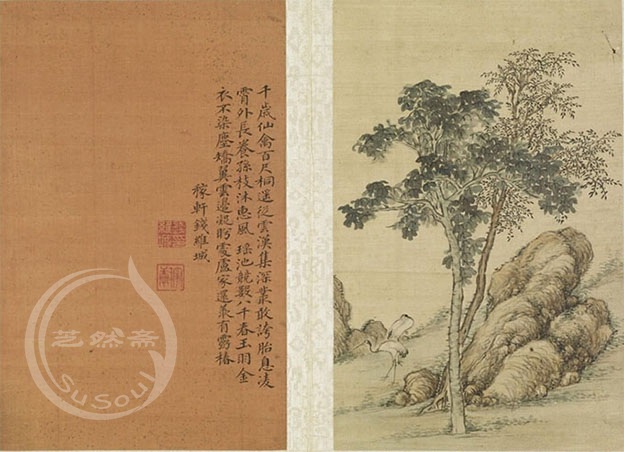 千歲仙禽百尺桐還從雲漢集深叢敢誇胎息凌
霄外長養孫枝沐惠風瑤池競數八千春玉羽金
衣不染塵矯翼雲邊處家還有椿
稼軒錢維城
芝然斋
SuSoul